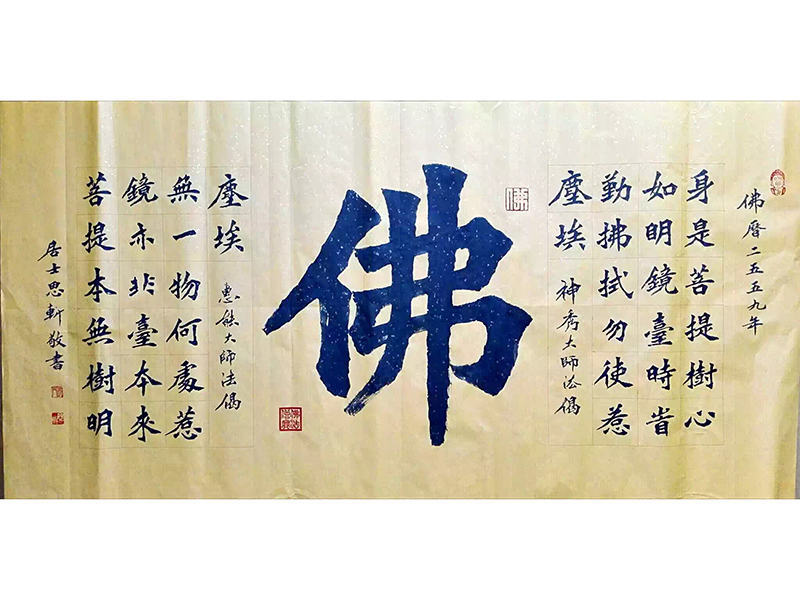 佛曆二五五九年
身是菩提樹心
如明鏡臺時旹
勤拂拭勿使惹
塵埃
神秀大師法偈
佛
菩提本無樹明
鏡亦非臺本來
無一物何處惹
塵埃
惠能大師法偈
居士思軒敬書